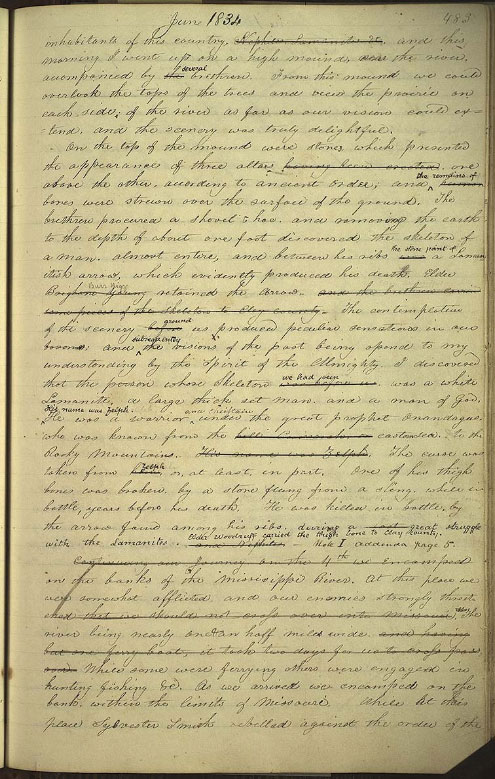 Jun 1834 483
inhabitants of this country, Nephites, Lamanites &c. and this
morning I went up on a high mound, near the river,
accompanied by the several brethren. From this mound we could
overlook the tops of the trees and view the prairie on
each side of the river as far as our vision could ex-
-tend, and the scenery was truly delightful.
On the top of the mound were stones which presented
the appearance of three altars having been erected, one
above the other, according to ancient order; and the remains of
bones were strewn over the surface of the ground. The
brethren procured a shovel & hoe, and removing the earth
to the depth of about one foot discovered the skeleton of
a man, almost entire, and between his ribs the stone point of a Laman-
itish arrow, which evidently produced his death. Elder
Burr Riggs Brigham Young retained the arrow. and the brethren carried
some pieces of the skeleton to Clay county. The contemplation
of the scenery before us produced peculiar sensations in our
bosoms; and subsequently the visions of the past being opend to my
understanding by the Spirit of the Almighty I discovered
that the person whose skeleton we had seen was before us was a white
Lamanite, a large thick set man, and a man of God.
His name was Zelph. He was a warrior and chieftain under the great prophet Onandagus
who was known from the hill Cumorah or eastern sea, to the
Rocky Mountains. His name was Zelph. The curse was
taken from Zelph, or, at least, in part. One of his thigh
bones was broken, by a stone flung from a sling, while in
battle, years before his death. He was killed in battle, by
the arrow found among his ribs, during a last great struggle
with the Lamanites. and Nephites. Elder Woodruff carried the thigh bone to Clay County. Note I addenda page 5.
Continuing our journey on the 4th we encamped
on the banks of the Mississippi River. At this place we
were somewhat afflicted and our enemies strongly threat-
ened that we should not cross over into Missouri. The
river being nearly one and an half miles wide and having
but one ferry boat, it took two days for us to cross over.
and While some were ferrying others were engaged in
hunting fishing &c. As we arrived we encamped on the
bank, within the limits of Missouri. While at this
place Sylvester Smith rebelled against the order of the